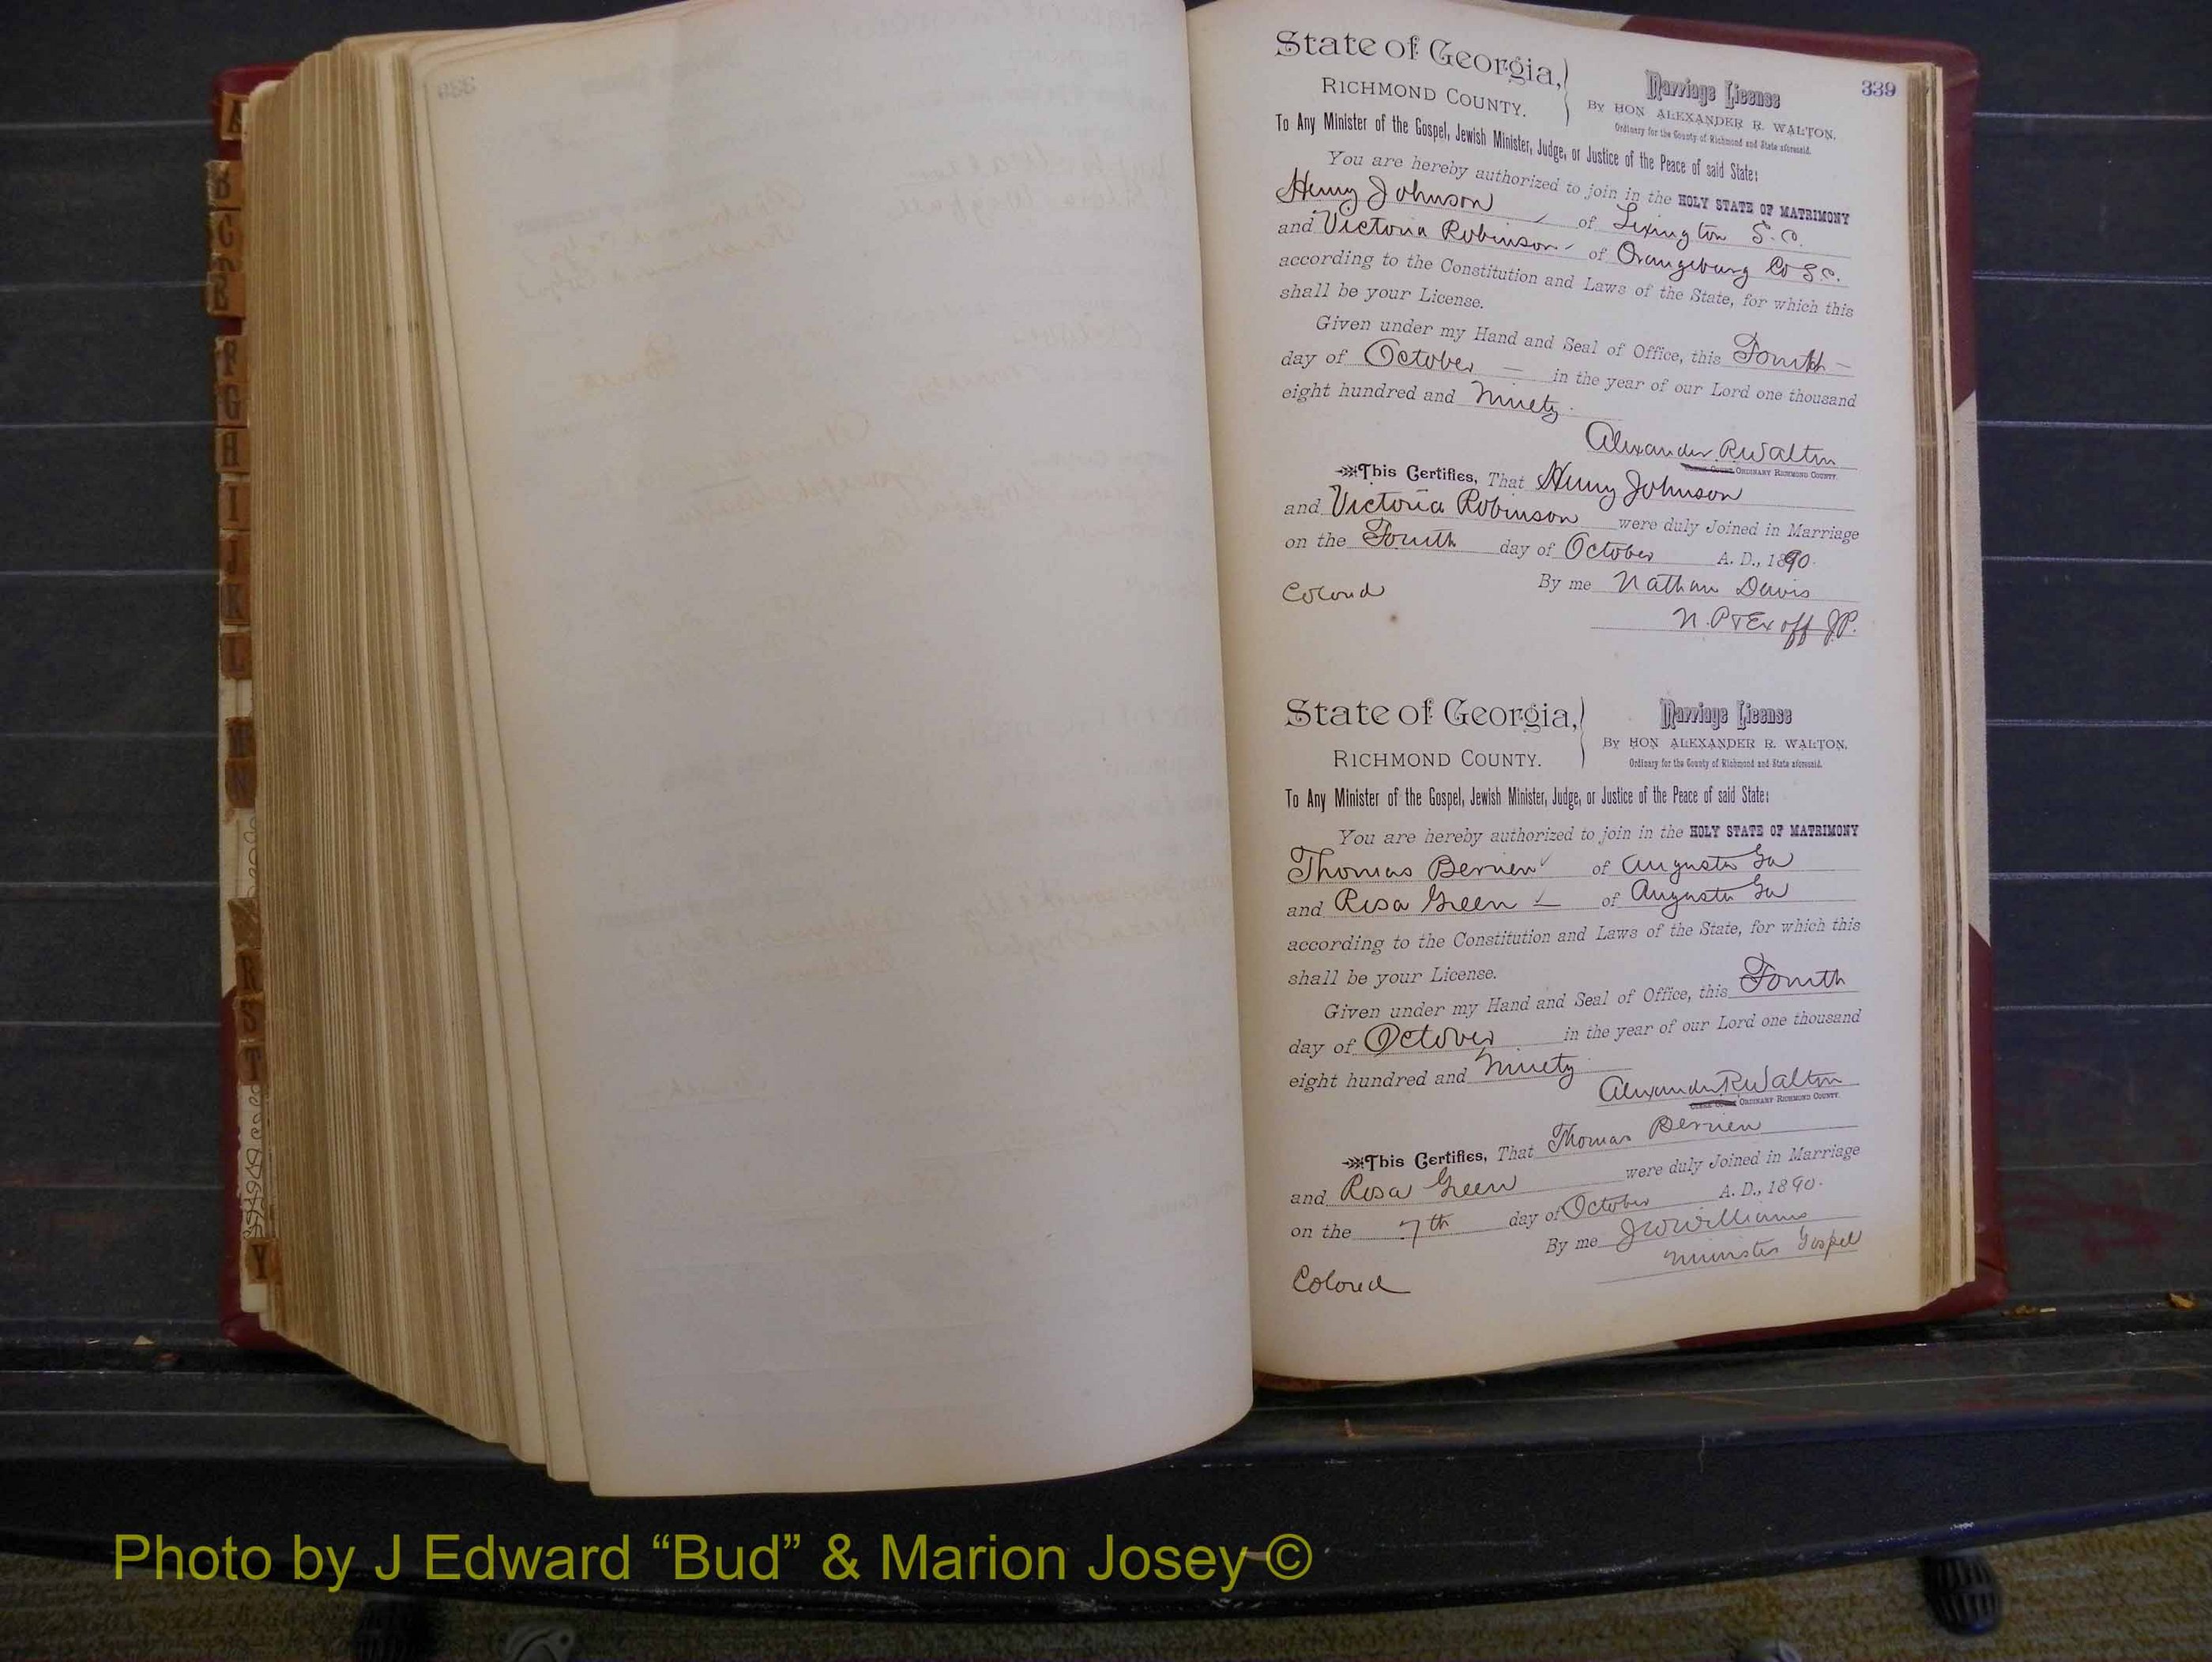 A
B
C
D
E
F
G
H
I
J
K
L
M
N
R
S
T
Y
339
State of Georgia,
RICHMOND COUNTY.
Marriage License
BY HON ALEXANDER R. WALTON,
Ordinary for the County of Richmond and State aforesaid.
To Any Minister of the Gospel, Jewish Minister, Judge, or Justice of the Peace of said State:
You are hereby authorized to join in the HOLY STATE OF MATRIMONY
Henry Johnson of Lexington S.C.
and Victoria Robinson of Orangeburg Co S.C.
according to the Constitution and Laws of the State, for which this
shall be your License.
Given under my Hand and Seal of Office, this Fourth
day of October in the year of our Lord one thousand
eight hundred and Ninety.
Alexander R Walton
CLERK COURT ORDINARY RICHMOND COUNTY.
This Certifies, That Henry Johnson
and Victoria Robinson were duly Joined in Marriage
on the Fourth day of October A. D., 1890.
Colored By me Nathan Davis
N.P & Ex off J.P.
State of Georgia,
RICHMOND COUNTY.
Marriage License
BY HON ALEXANDER R. WALTON,
Ordinary for the County of Richmond and State aforesaid.
To Any Minister of the Gospel, Jewish Minister, Judge, or Justice of the Peace of said State:
You are hereby authorized to join in the HOLY STATE OF MATRIMONY
Thomas Berrien of Augusta Ga
and Rosa Green of Augusta Ga
according to the Constitution and Laws of the State, for which this
shall be your License.
Given under my Hand and Seal of Office, this Fourth
day of October in the year of our Lord one thousand
eight hundred and Ninety
Alexander R Walton
CLERK COURT ORDINARY RICHMOND COUNTY.
This Certifies, That Thomas Berrien
and Rosa Green were duly Joined in Marriage
on the 7th day of October A. D., 1890.
By me J W Williams
Minister Gospel
Colored
Photo by J Edward “Bud” & Marion Josey ©